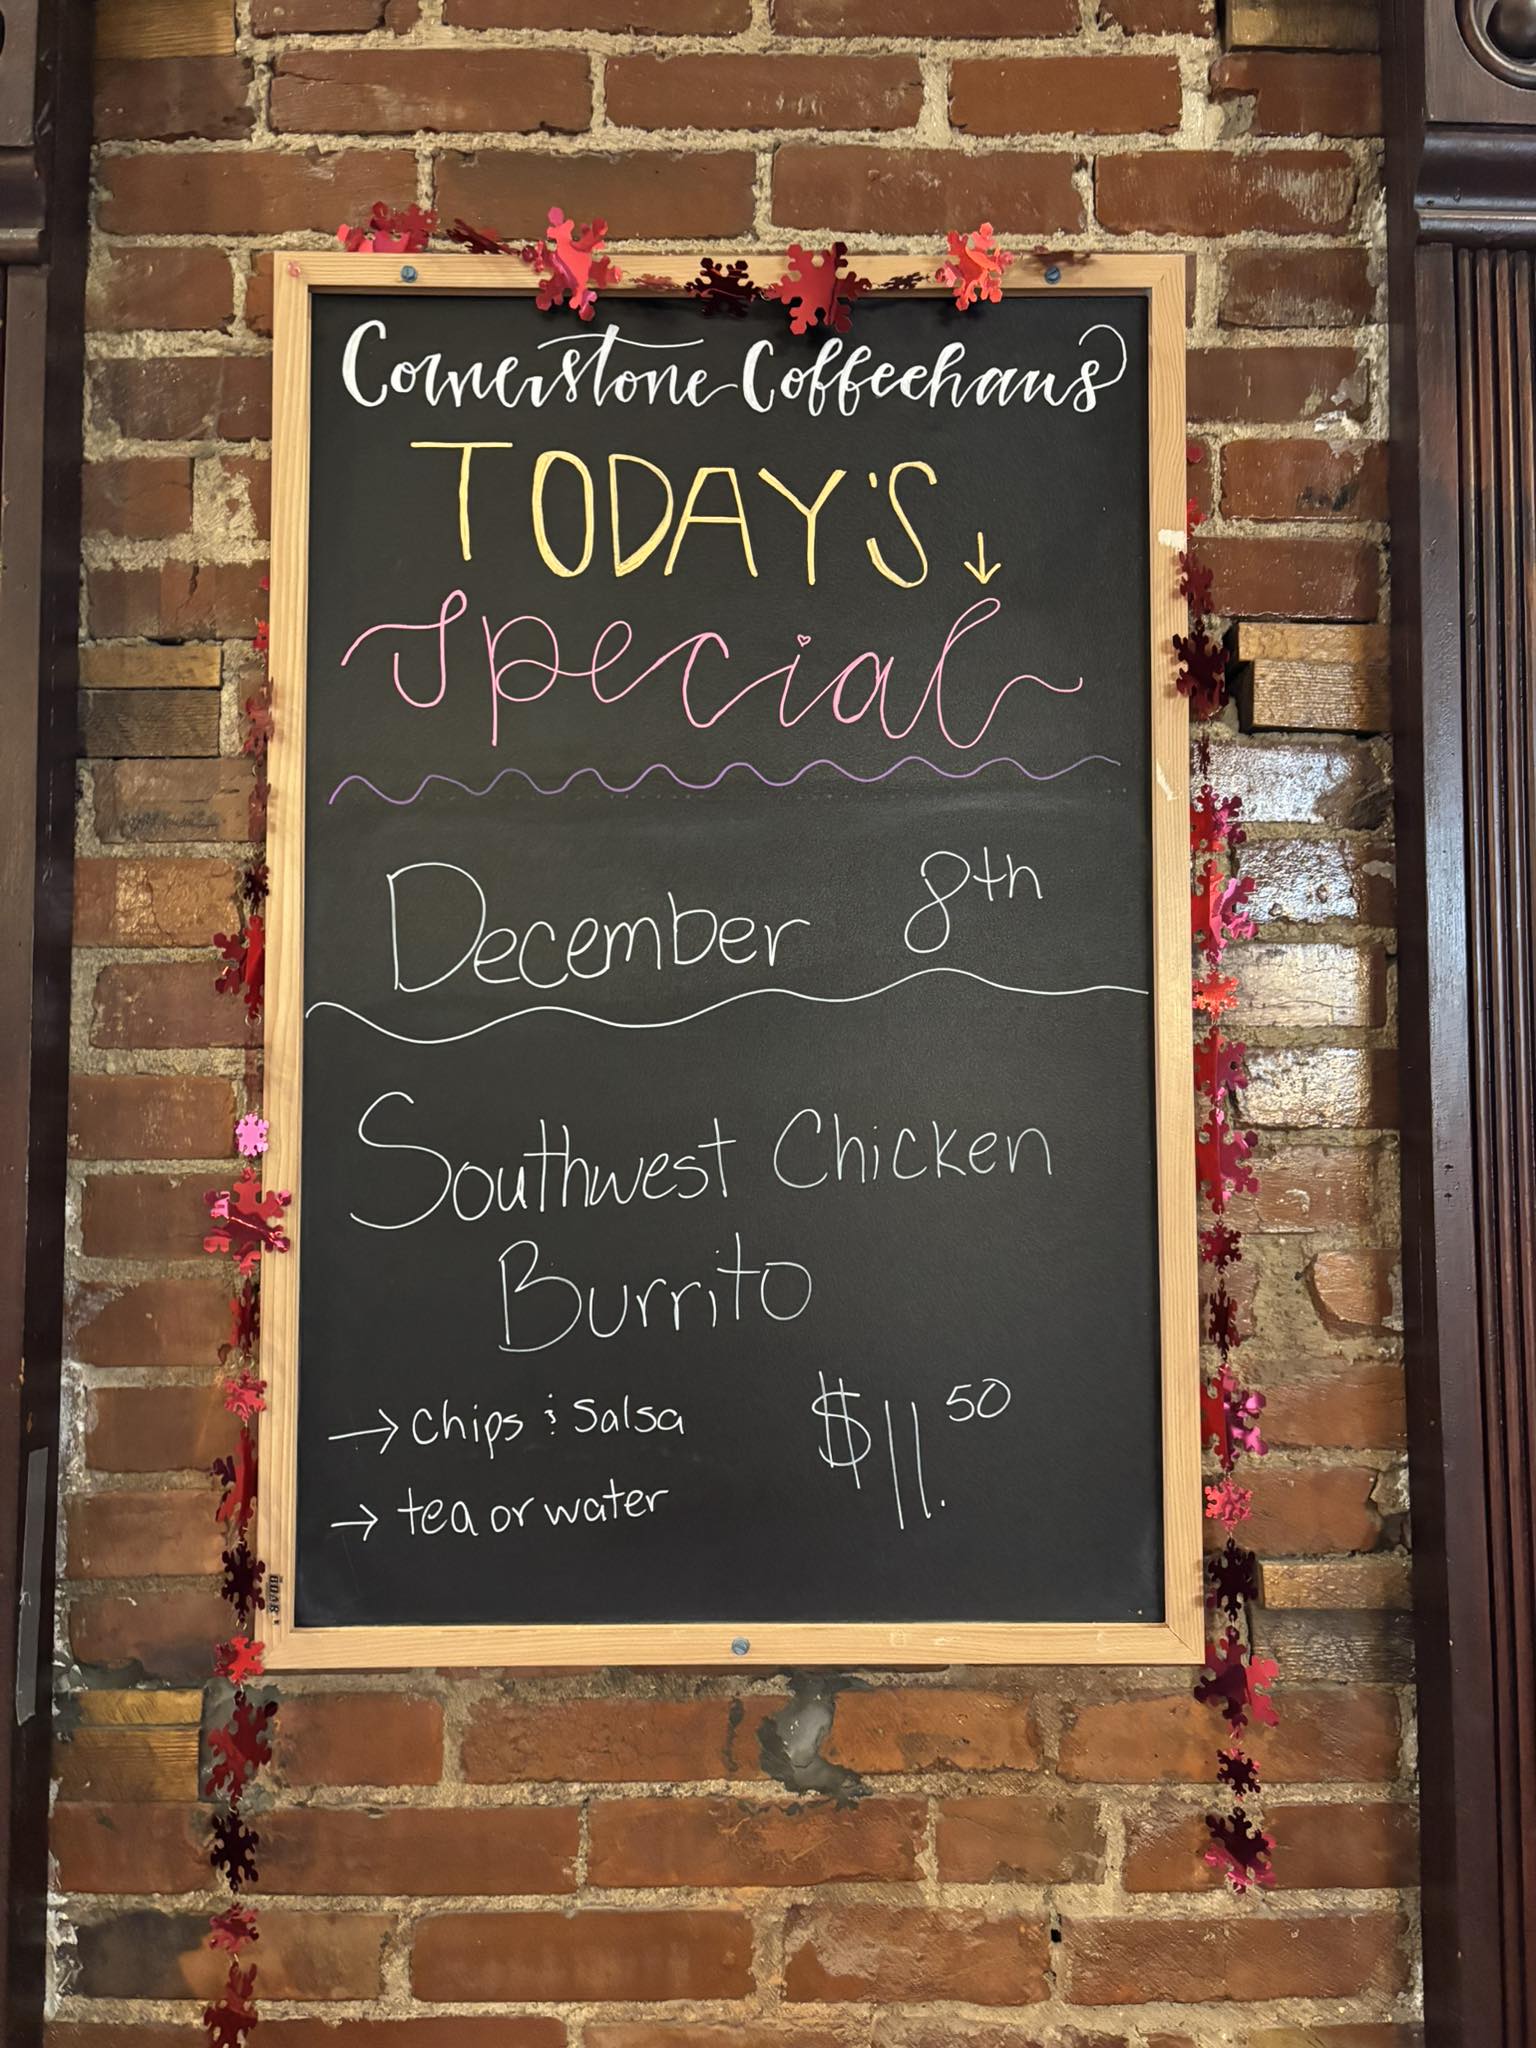 Cornerstone Coffeehaus
TODAY'S ↓
Special
December 8th
Southwest Chicken
Burrito
→ Chips & Salsa
$11.50
→ tea or water